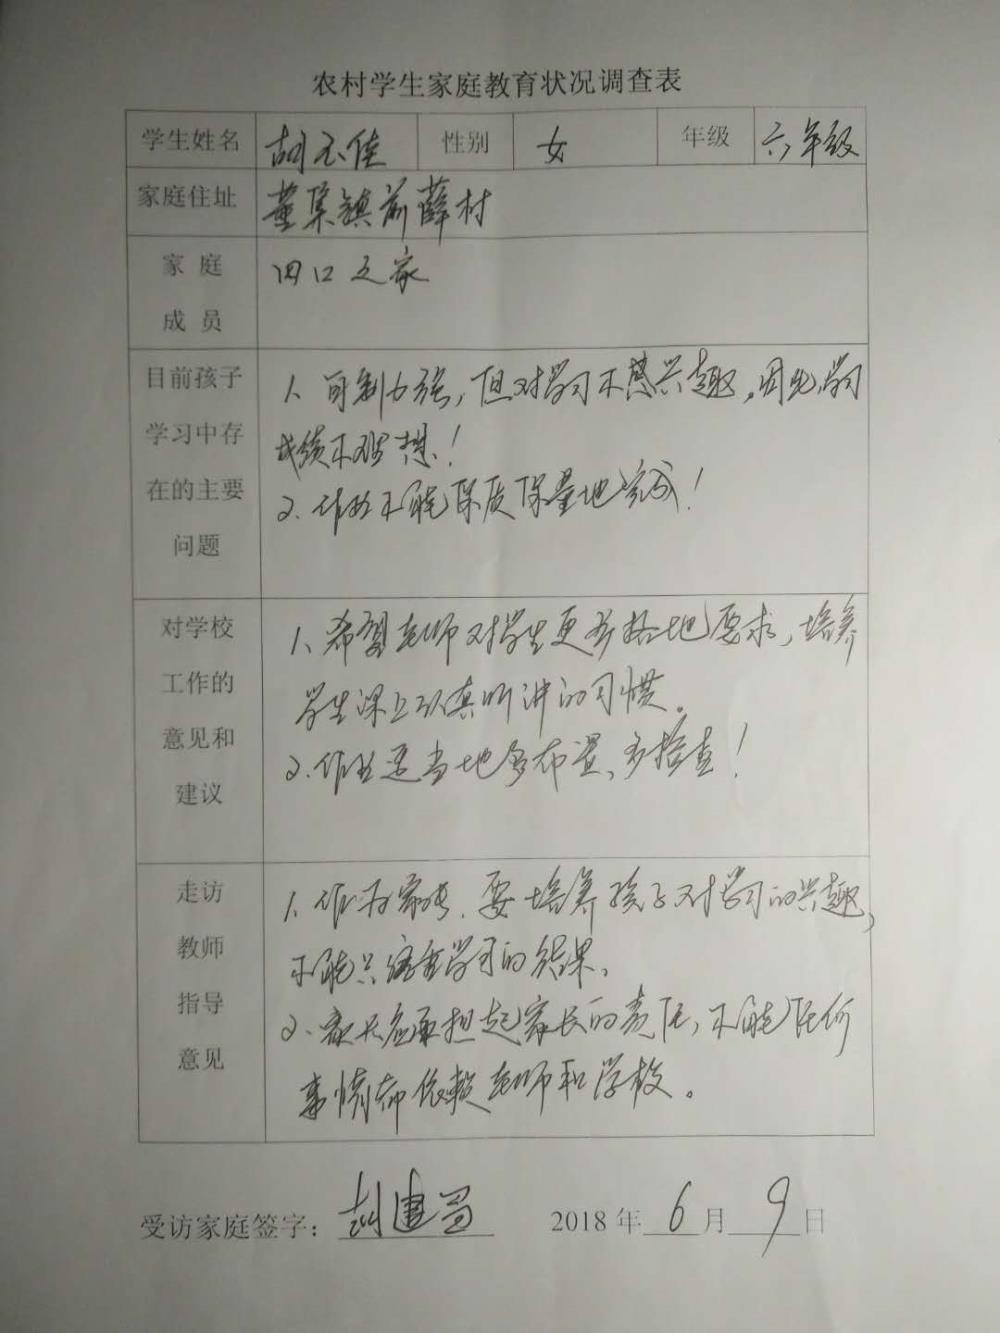 农村学生家庭教育状况调查表
学生姓名 胡玉佳 性别 女 年级 六年级
家庭住址 董集镇前薛村
家庭 四口之家
成员
目前孩子 1、自制力强，但对学习不感兴趣，因此，学习
学习中存 成绩不理想！
在的主要 2、作业不能保质保量地完成！
问题
对学校 1、希望老师对学生更严格地要求，培养
工作的 学生课上认真听讲的习惯。
意见和 2、作业适当地多布置、多检查！
建议
走访 1、作为家长，要培养孩子对学习的兴趣，
教师 不能只注重学习的结果。
指导 2、家长应承担起家长的责任，不能任何
意见 事情都依赖老师和学校。
受访家庭签字：胡建 2018年6月9日